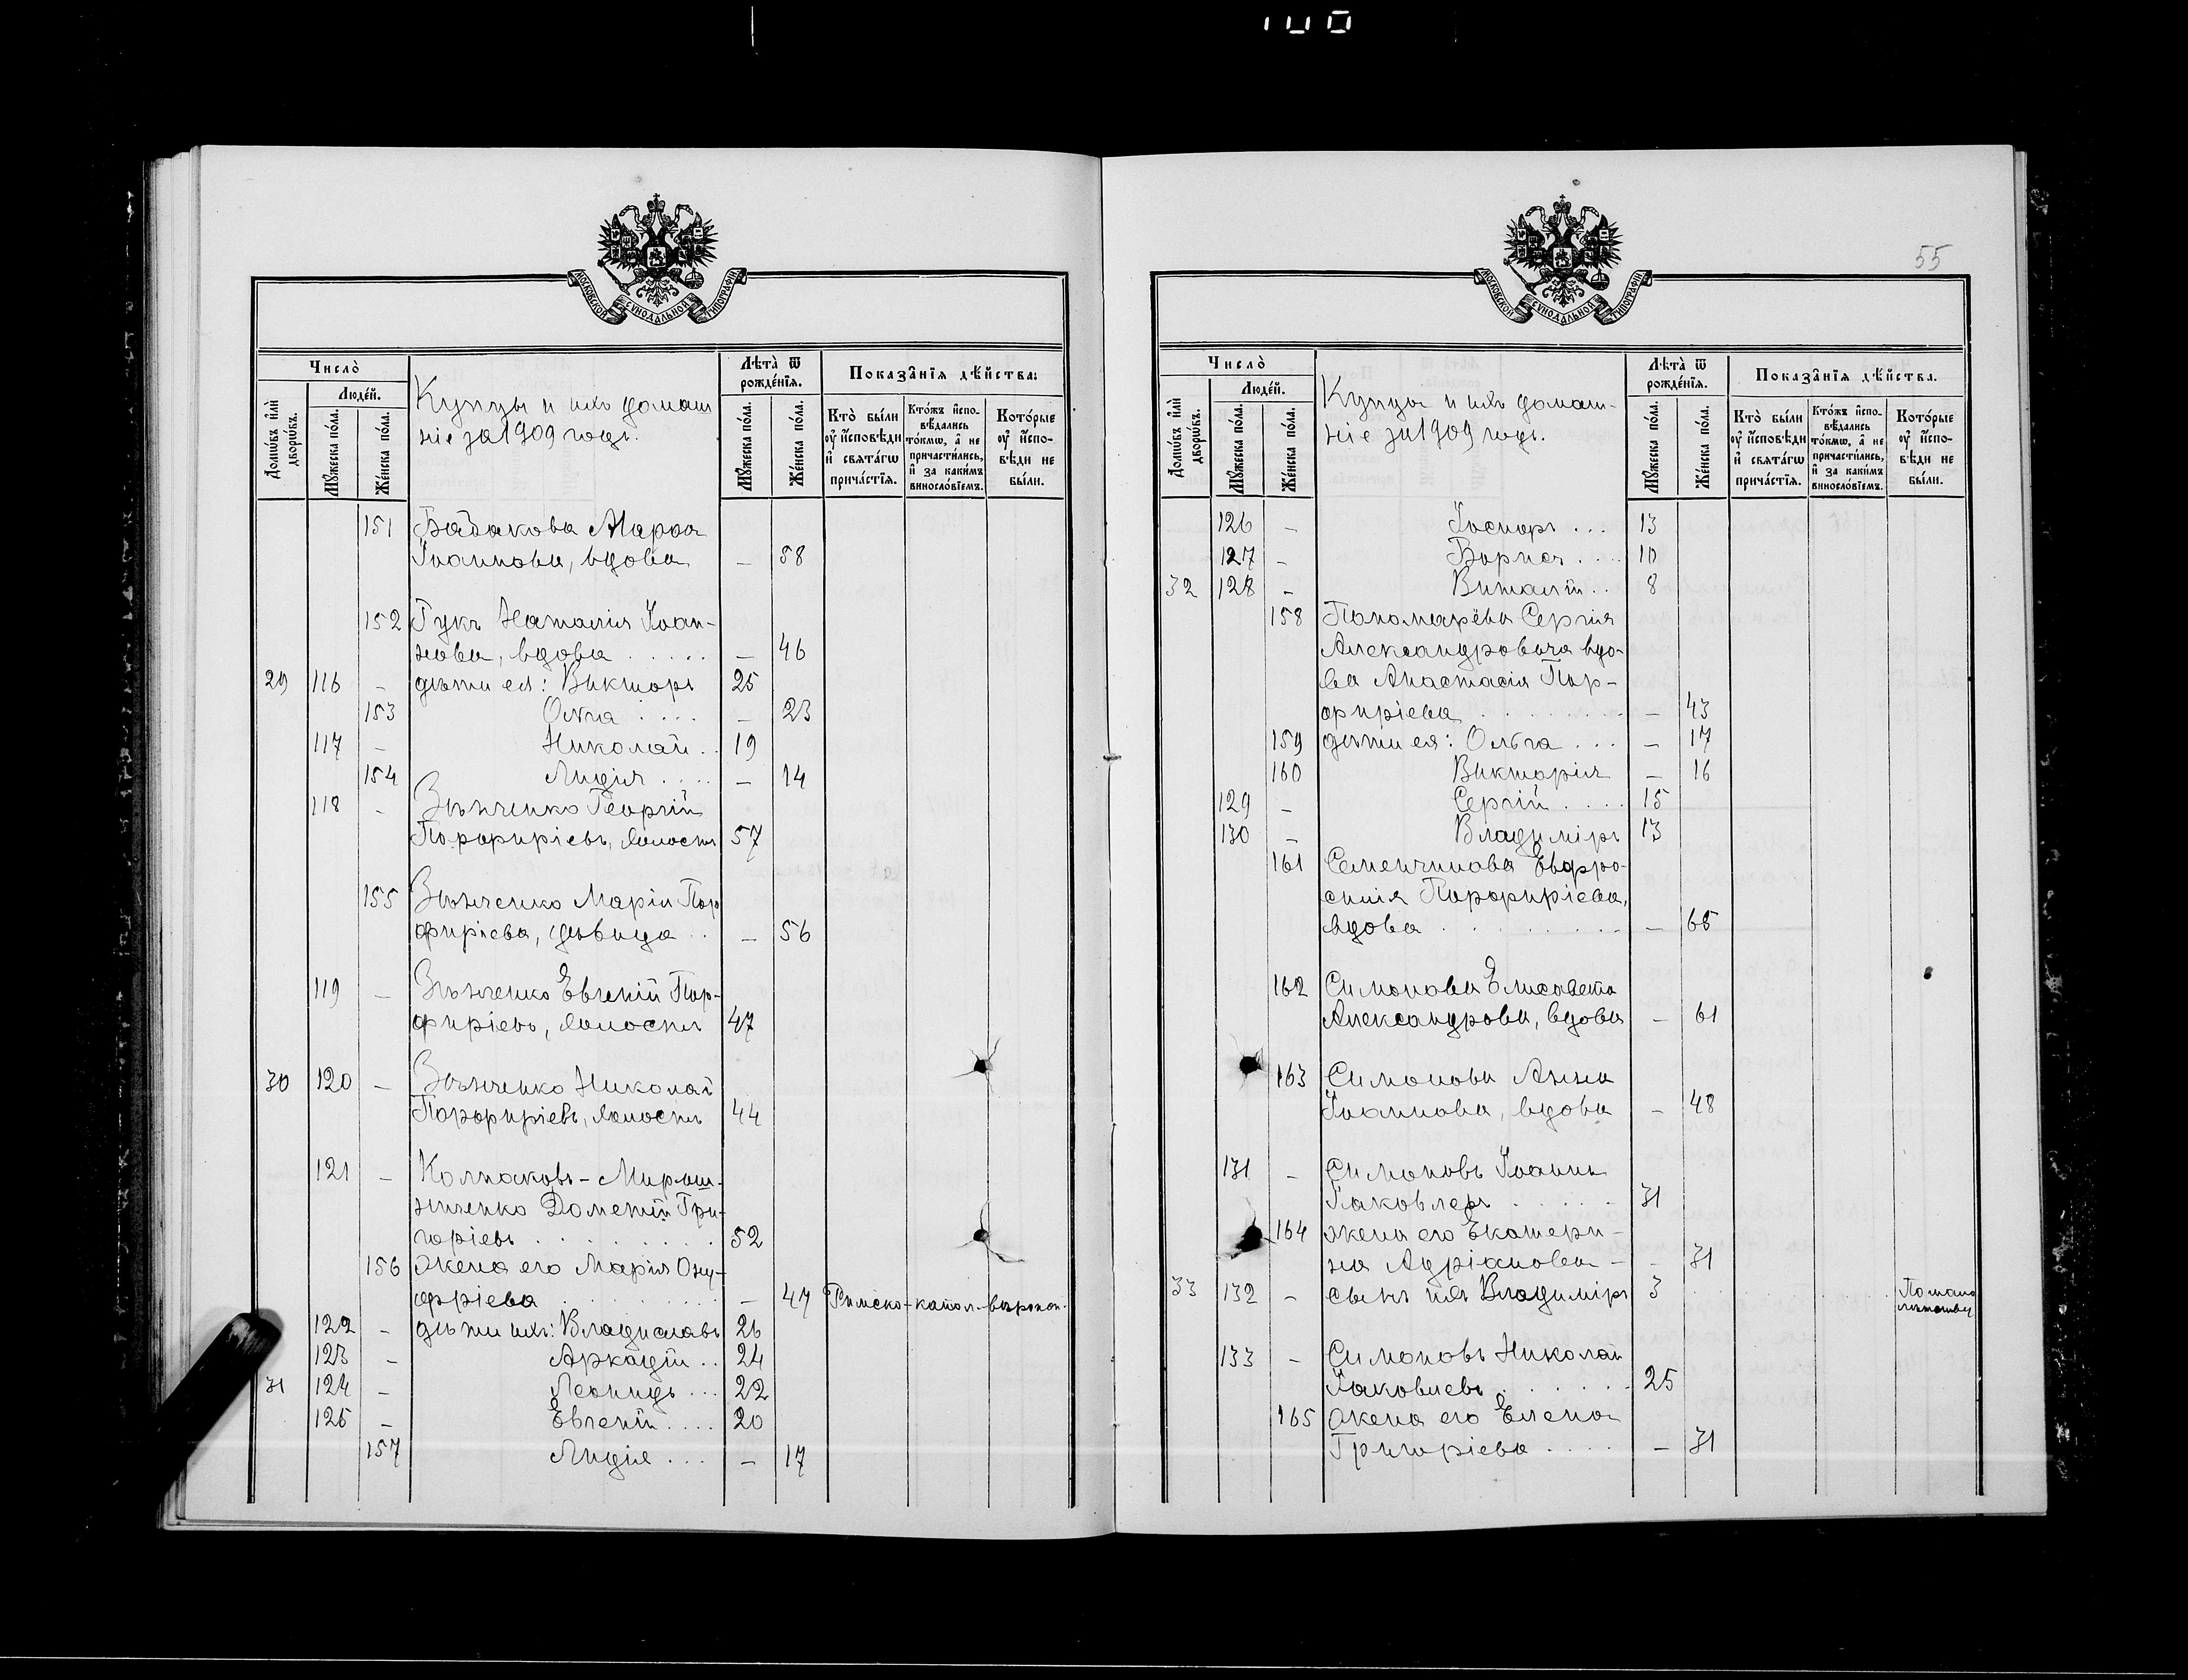 100
МОСКОВСКОЙ СѴНОДАЛЬНОЙ ТИПОГРАФІИ
Число̀
Домѡ́въ и҆лѝ дворѡ́въ.
Люде́й.
Мꙋ́жеска по́ла.
Же́нска по́ла.
Купцы и ихъ домаш
ніе за 1909 годъ.
Лѣта̀ ѿ рожде́нїѧ.
Мꙋ́жеска по́ла.
Же́нска по́ла.
Показа̑нїѧ дѣ́йства:
Кто̀ бы́ли
ᲂу҆ и҆сповѣ́ди
и҆ свѧта́гѡ
прича́стїѧ.
Кто́жъ и҆спо-
вѣ́дались
то́кмѡ, а҆ не
причасти́лись,
и҆ за каки́мъ
виносло́вїемъ.
Кото́рые
ᲂу҆ и҆спо-
вѣ́ди не
бы́ли.
151 Бабакова Марѳа
Іоаннова, вдова — 58
152 Гукъ Наталія Іоан-
нова, вдова ..... — 46
29 116 – дѣти ея: Викторъ 25
153 Ольга .... — 23
117 – Николай .. 19
154 Лидія .... — 14
118 – Зѣнченко Георгій
Порфиріевъ, холостъ 57
155 Зѣнченко Марія Пор
фиріева, дѣвица .. — 56
119 — Зѣнченко Евгеній Пор-
фиріевъ, холостъ 47
30 120 – Зѣнченко Николай
Порфиріевъ, холостъ 44
121 – Колпаковъ-Мирош-
ниченко Дометій Гри-
горіевъ ........ 52
156 жена его Марія Ону-
фріева ........ — 47 Римско-катол. вѣроисп.
122 – дѣти ихъ: Владиславъ 26
123 – Аркадій .. 24
31 124 – Леонидъ ... 22
125 – Евгеній .... 20
157 Лидія ... — 17
55
МОСКОВСКОЙ СѴНОДАЛЬНОЙ ТИПОГРАФІИ
Число̀
Домѡ́въ и҆лѝ дворѡ́въ.
Люде́й.
Мꙋ́жеска по́ла.
Же́нска по́ла.
Купцы и ихъ домаш-
ніе за 1909 годъ.
Лѣта̀ ѿ рожде́нїѧ.
Мꙋ́жеска по́ла.
Же́нска по́ла.
Показа̑нїѧ дѣ́йства.
Кто̀ бы́ли
ᲂу҆ и҆сповѣ́ди
и҆ свѧта́гѡ
прича́стїѧ.
Кто́жъ и҆спо-
вѣ́дались
то́кмѡ, а҆ не
причасти́лись,
и҆ за каки́мъ
виносло́вїемъ.
Кото́рые
ᲂу҆ и҆спо-
вѣ́ди не
бы́ли.
126 – ... 13
127 – Борисъ .... 10
32 128 – Виталій .. 8
158 Пономарёва Сергія
Александровича вдо-
ва Анастасія Пор-
фиріева ........ — 43
159 дѣти ея: Ольга ... — 17
160 Викторія — 16
129 – Сергій .... 15
130 – Владиміръ 13
161 Семенчинова Евфро-
синія Порфиріева,
вдова ......... — 65
162 Симонова Елисавета
Александрова, вдова – 61
163 Симонова Анна
Іоаннова, вдова – 48
131 – Симоновъ Іоаннъ
Іаковлевъ ...... 31
164 жена его Екатери-
на Адріанова – – 31
33 132 – сынъ ихъ Владиміръ 3 По мало
лѣтству
133 – Симоновъ Николай
Іаковлевъ ....... 25
165 жена его Елена
Григоріева .... – 31